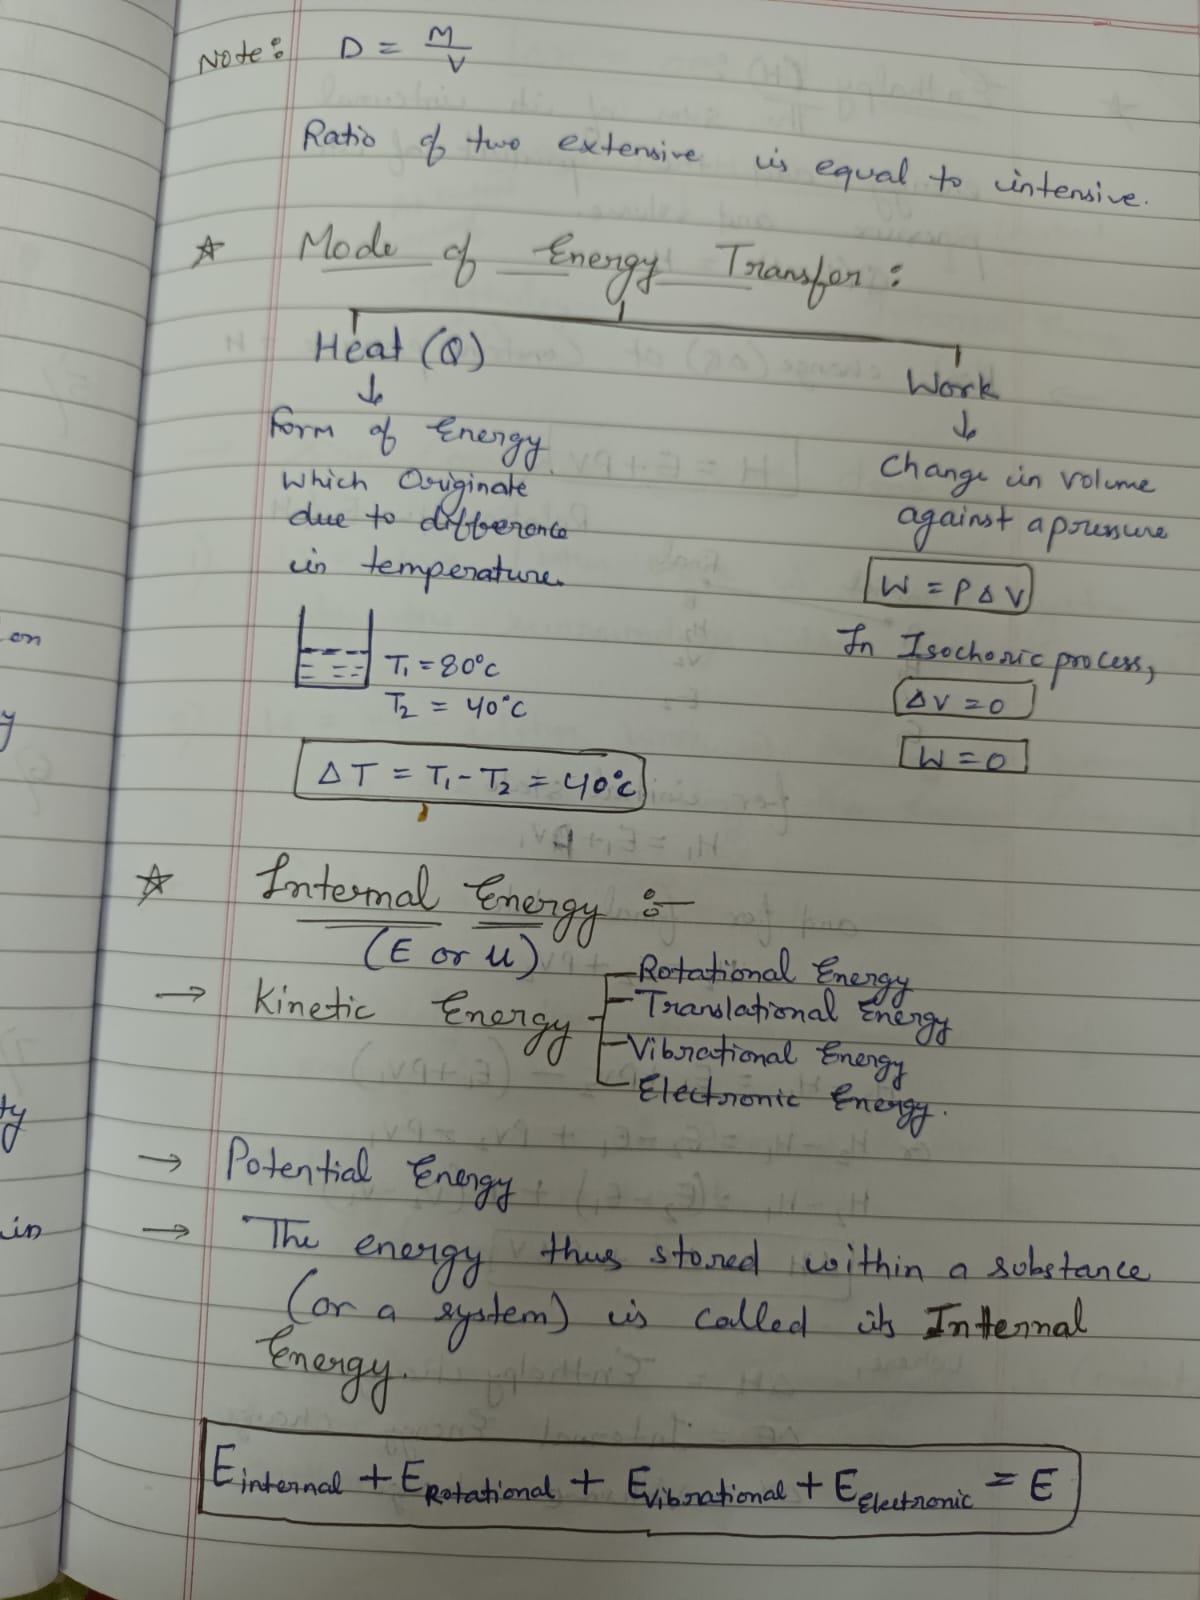 Note: D = M/V
Ratio of two extensive is equal to intensive.
☆ Mode of Energy Transfer:
Heat (Q)
Work
↓
Form of Energy
which Originate
due to difference
in temperature.
↓
Change in volume
against a pressure
W = PΔV
In Isochoric process,
ΔV = 0
W = 0
T₁ = 80°C
T₂ = 40°C
ΔT = T₁ - T₂ = 40°C
☆ Internal Energy :-
(E or U)
→ Kinetic Energy
Rotational Energy
Translational Energy
Vibrational Energy
Electronic Energy.
→ Potential Energy
→ The energy thus stored within a substance
(or a system) is called its Internal
Energy.
E internal + E Rotational + E Vibrational + E Electronic = E
on
y
ty
in